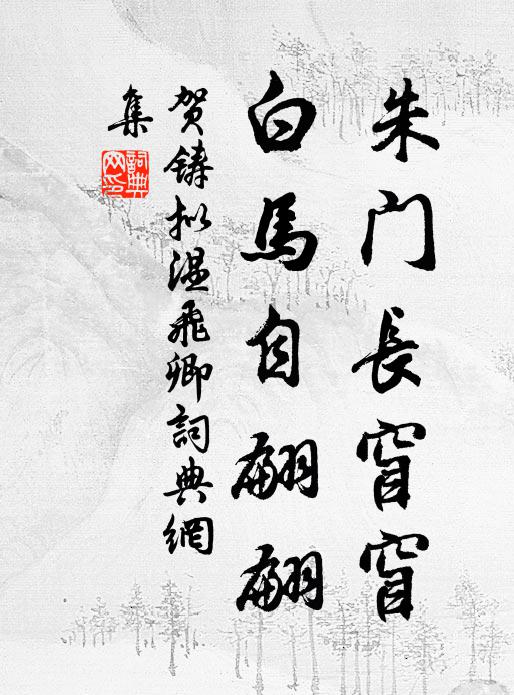 朱门長窅窅
白馬自翩翩
贺铸拟温飛卿詞典網
集
詞典
网印